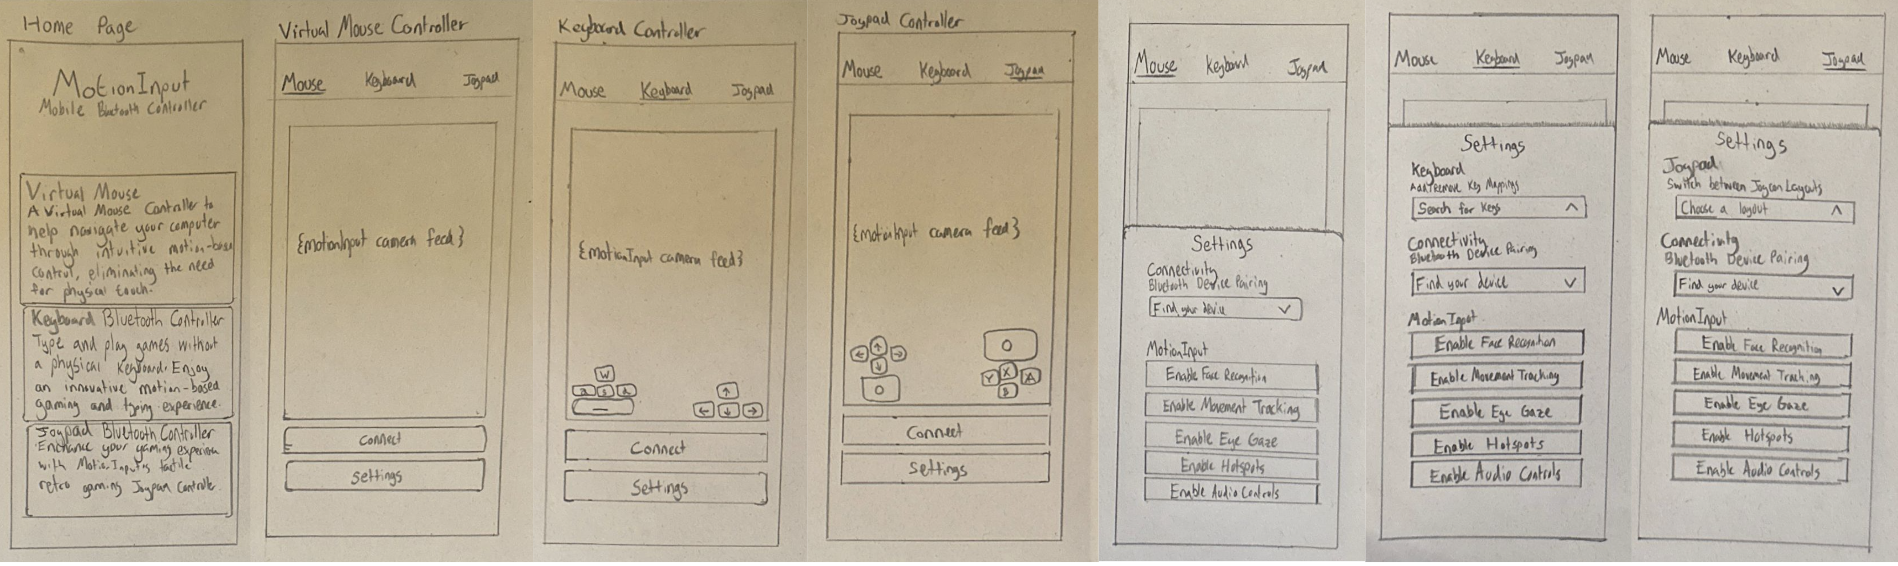 Home Page
MotionInput
Mobile Bluetooth Controller
Virtual Mouse
A Virtual Mouse Controller to
help navigate your computer
through intuitive motion-based
control, eliminating the need
for physical touch.
Keyboard Bluetooth Controller
Type and play games without
a physical keyboard. Enjoy
an innovative motion-based
gaming and typing experience.
Joypad Bluetooth Controller
Enchance your gaming experience
with MotionInput's tactile
retro gaming Joypad Controller.
Virtual Mouse Controller
Mouse Keyboard Joypad
{motionInput camera feed}
Connect
Settings
Keyboard Controller
Mouse Keyboard Joypad
{MotionInput camera feed}
W
a s d
← ↑ ↓ →
Connect
Settings
Joypad Controller
Mouse Keyboard Joypad
{MotionInput camera feed}
← ↑ ↓ →
Y X A
B
Connect
Settings
Mouse Keyboard Joypad
Settings
Connectivity
Bluetooth Device Pairing
Find your device
MotionInput
Enable Face Recognition
Enable Movement Tracking
Enable Eye Gaze
Enable Hotspots
Enable Audio Controls
Mouse Keyboard Joypad
Settings
Keyboard
Add/Remove Key Mappings
Search for Keys
Connectivity
Bluetooth Device Pairing
Find your device
MotionInput
Enable Face Recognition
Enable Movement Tracking
Enable Eye Gaze
Enable Hotspots
Enable Audio Controls
Mouse Keyboard Joypad
Settings
Joypad
Switch between Joycon Layouts
Choose a layout
Connectivity
Bluetooth Device Pairing
Find your device
MotionInput
Enable Face Recognition
Enable Movement Tracking
Enable Eye Gaze
Enable Hotspots
Enable Audio Controls